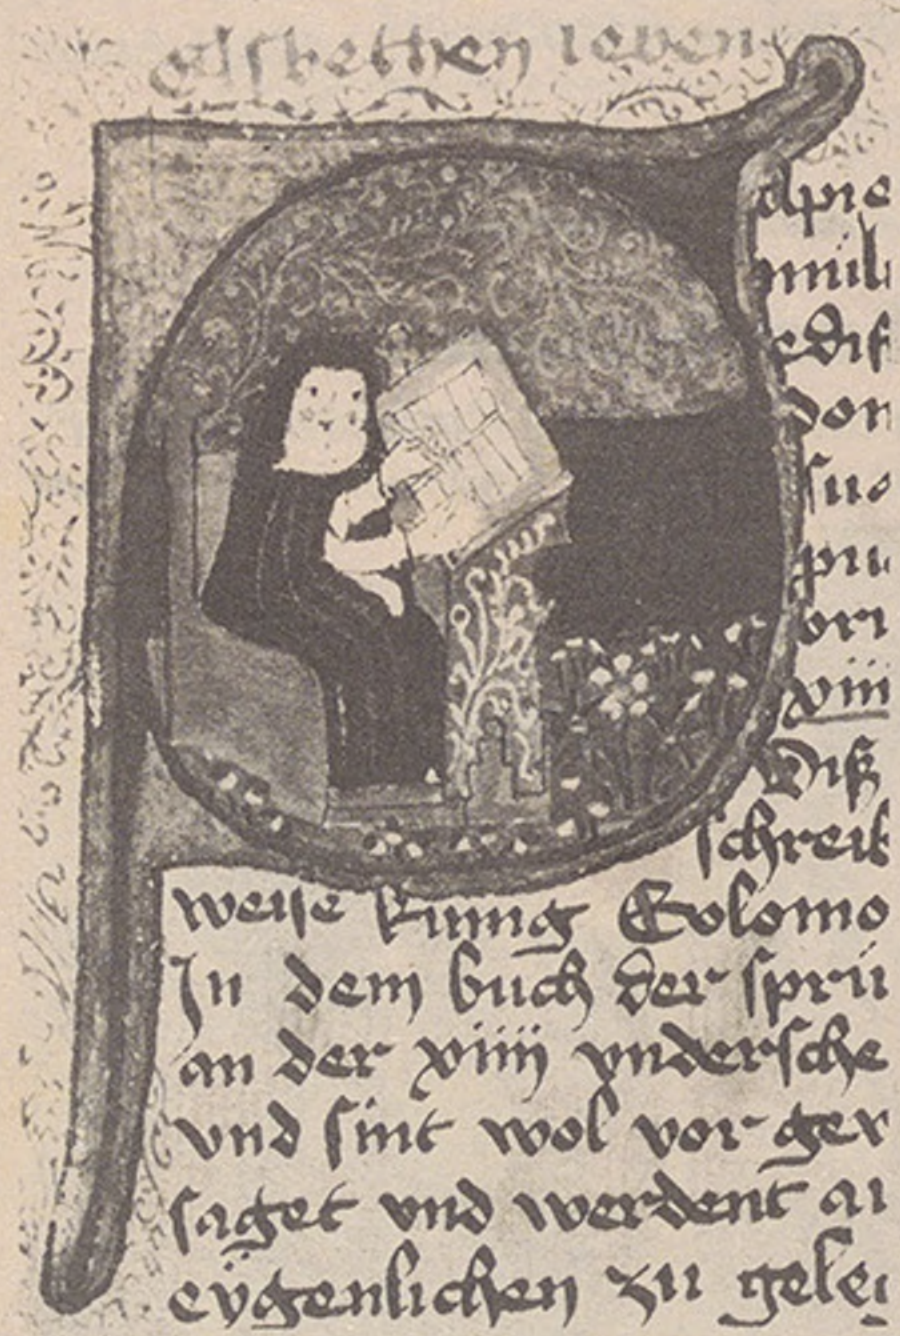 Elsbethen leben
apie
muli
edif
don
suo
pru
ori
xiii
Diß
schreib
weise kunig Salomo
In dem buch der sprü
an der xiiii vndersche
vnd sint wol vor ger
saget vnd werdent ai
eygenlichen zu gelei